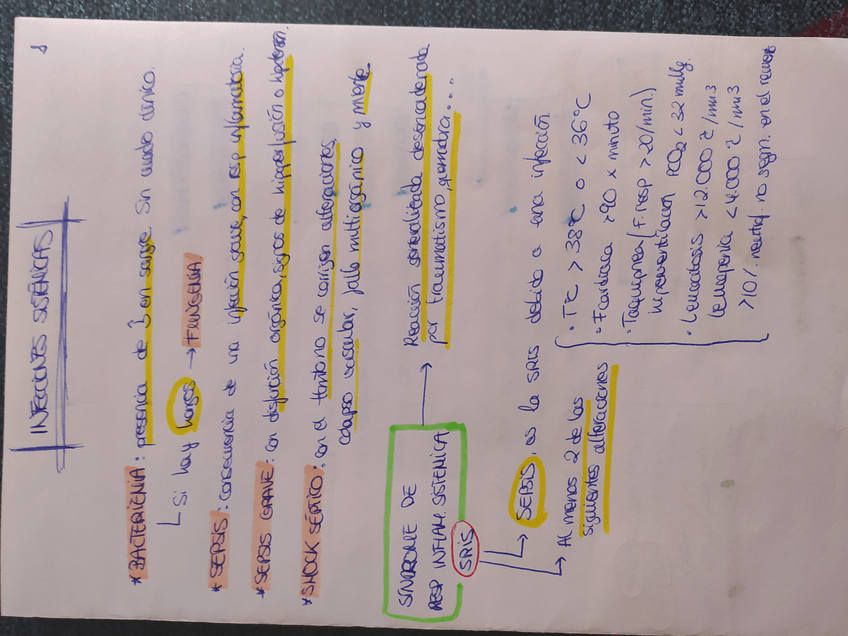 1
INFECCIONES SISTÉNICAS
* BACTERIEMIA: presencia de B en sangre. Sin cuadro clínico.
Si hay hongos → FUNGEMIA
* SEPSIS: Consecuencia de una infección grave, con resp inflamatoria.
* SEPSIS GRAVE: con disfunción orgánica, signos de hipoperfusión o hipotensión.
* SHOCK SÉPTICO: con el tratamiento no se corrigen alteraciones
colapso vascular, fallo multiorgánico y muerte.
SÍNDROME DE
RESP INFLAM. SISTÉMICA
SRIS
→ Reacción generalizada desencadenada
por traumatismo, quemadura....
→ SEPSIS, es la SRIS debido a una infección
→ Al menos 2 de las
siguientes alteraciones
• TC > 38°C o < 36°C
• Fcardiaca >90 x minuto
• Taquipnea (F. resp > 20/min)
hiperventilación PCO2 < 32 mmHg
• Leucocitosis >12.000 /mm3
Leucopenia < 4.000 /mm3
>10% neutrof. no segm. en el